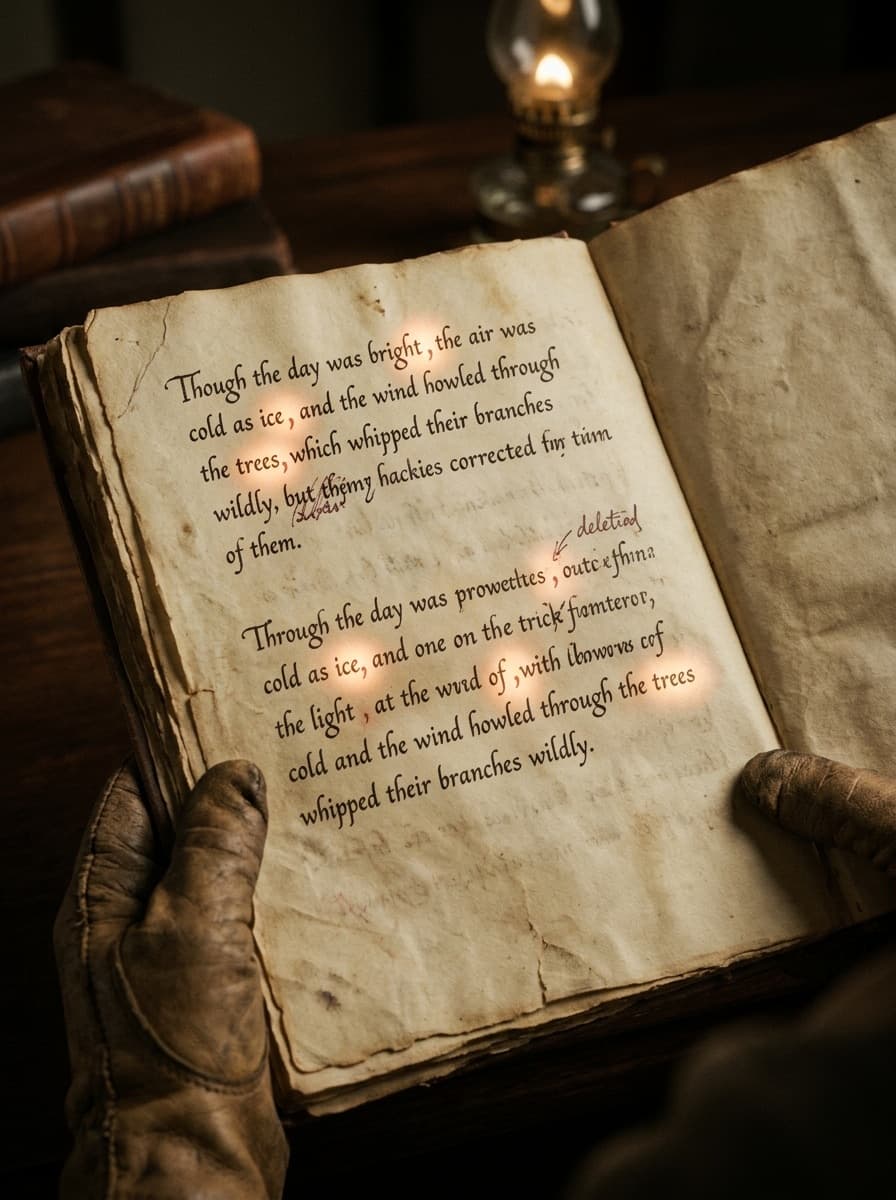 Though the day was bright, the air was
cold as ice, and the wind howled through
the trees, which whipped their branches
wildly, but hackies corrected
of them.
deletiod
Through the day was prowetltes ,
cold as ice, and one on the trick
the light , at the of ,with cof
cold and the wind howled through the trees
whipped their branches wildly.